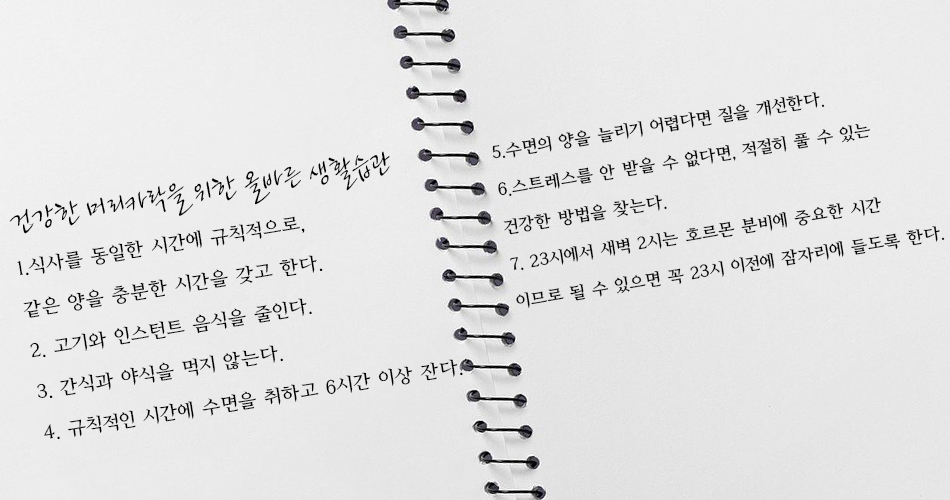 건강한 머리카락을 위한 올바른 생활습관
1.식사를 동일한 시간에 규칙적으로,
같은 양을 충분한 시간을 갖고 한다.
2. 고기와 인스턴트 음식을 줄인다.
3. 간식과 야식을 먹지 않는다.
4. 규칙적인 시간에 수면을 취하고 6시간 이상 잔다.
5.수면의 양을 늘리기 어렵다면 질을 개선한다.
6.스트레스를 안 받을 수 없다면, 적절히 풀 수 있는
건강한 방법을 찾는다.
7. 23시에서 새벽 2시는 호르몬 분비에 중요한 시간
이므로 될 수 있으면 꼭 23시 이전에 잠자리에 들도록 한다.